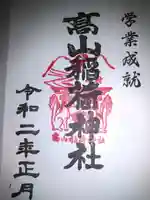 学業成就
高山稲荷神社
令和二年正月